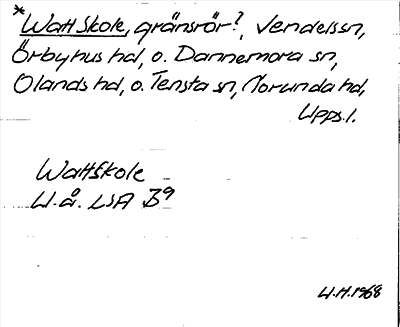 * Wattskole, gränsrör?, Vendelssn,
Örbyhus hd, o. Dannemora sn,
Olands hd, o. Tensta sn, Norunda hd,
Upps.l.
Wattskole
U.å. LSA B9
U.H.1968